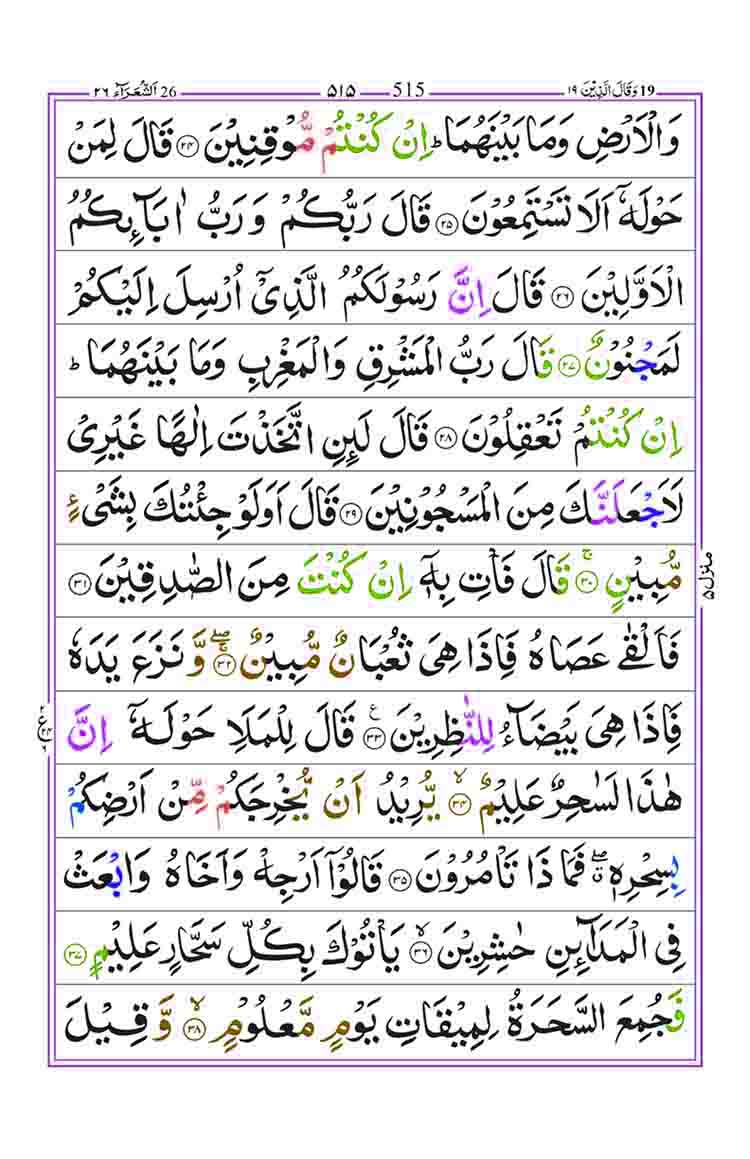 26 اَلشُّعَرَآء ٢٦ — 515 — ٥١٥ — 19 وَقَالَ الَّذِیْنَ ١٩
وَالْاَرْضِ وَمَا بَیْنَهُمَا ؕ اِنْ كُنْتُمْ مُّوْقِنِیْنَ ﴿٢٤﴾ قَالَ لِمَنْ
حَوْلَهٗۤ اَلَا تَسْتَمِعُوْنَ ﴿٢٥﴾ قَالَ رَبُّكُمْ وَ رَبُّ اٰبَآىِٕكُمُ
الْاَوَّلِیْنَ ﴿٢٦﴾ قَالَ اِنَّ رَسُوْلَكُمُ الَّذِیْۤ اُرْسِلَ اِلَیْكُمْ
لَمَجْنُوْنٌ ﴿٢٧﴾ قَالَ رَبُّ الْمَشْرِقِ وَالْمَغْرِبِ وَمَا بَیْنَهُمَا ؕ
اِنْ كُنْتُمْ تَعْقِلُوْنَ ﴿٢٨﴾ قَالَ لَىِٕنِ اتَّخَذْتَ اِلٰهًا غَیْرِیْ
لَاَجْعَلَنَّكَ مِنَ الْمَسْجُوْنِیْنَ ﴿٢٩﴾ قَالَ اَوَلَوْ جِئْتُكَ بِشَیْءٍ
مُّبِیْنٍ ۚ﴿٣٠﴾ قَالَ فَاْتِ بِهٖۤ اِنْ كُنْتَ مِنَ الصّٰدِقِیْنَ ﴿٣١﴾
فَاَلْقٰی عَصَاهُ فَاِذَا هِیَ ثُعْبَانٌ مُّبِیْنٌ ۚۖ﴿٣٢﴾ وَّ نَزَعَ یَدَهٗ
فَاِذَا هِیَ بَیْضَآءُ لِلنّٰظِرِیْنَ ﴿٣٣﴾ ع قَالَ لِلْمَلَاِ حَوْلَهٗۤ اِنَّ
هٰذَا لَسٰحِرٌ عَلِیْمٌ ۙ﴿٣٤﴾ یُّرِیْدُ اَنْ یُّخْرِجَكُمْ مِّنْ اَرْضِكُمْ
بِسِحْرِهٖ ۖۗ فَمَا ذَا تَاْمُرُوْنَ ﴿٣٥﴾ قَالُوْۤا اَرْجِهْ وَاَخَاهُ وَابْعَثْ
فِی الْمَدَآىِٕنِ حٰشِرِیْنَ ۙ﴿٣٦﴾ یَاْتُوْكَ بِكُلِّ سَحَّارٍ عَلِیْمٍ ﴿٣٧﴾
فَجُمِعَ السَّحَرَةُ لِمِیْقَاتِ یَوْمٍ مَّعْلُوْمٍ ۙ﴿٣٨﴾ وَّ قِیْلَ
منزل ٥
ع